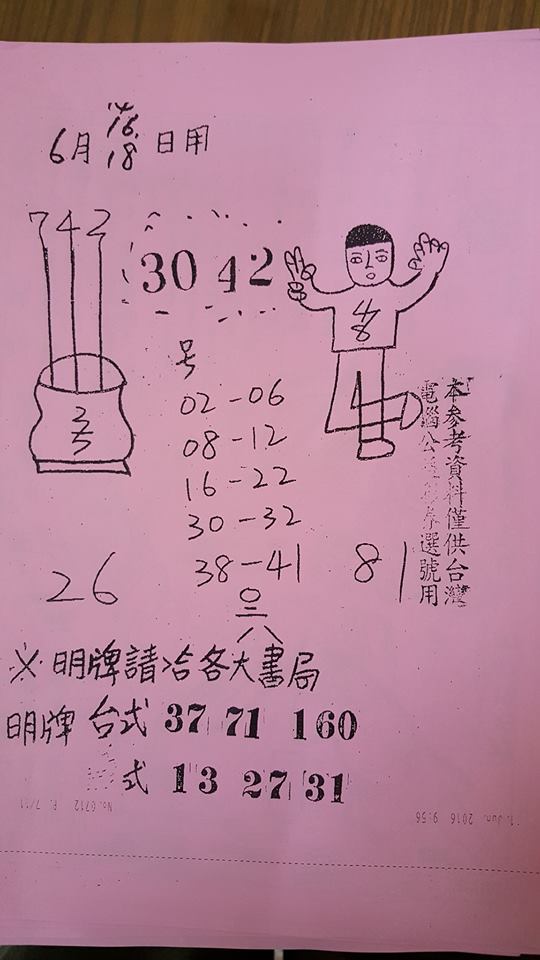 6月 14. 16. 18 日用
742
30 42
48
号
02-06
08-12
16-22
30-32
38-41
26
81
本參考資料僅供台灣
電腦公 選號用
〇
三
八
※明牌請洽各大書局
明牌 台式 37 71 160
式 13 27 31
No.0712 P. 7/11
1. Jun. 2016 9:56